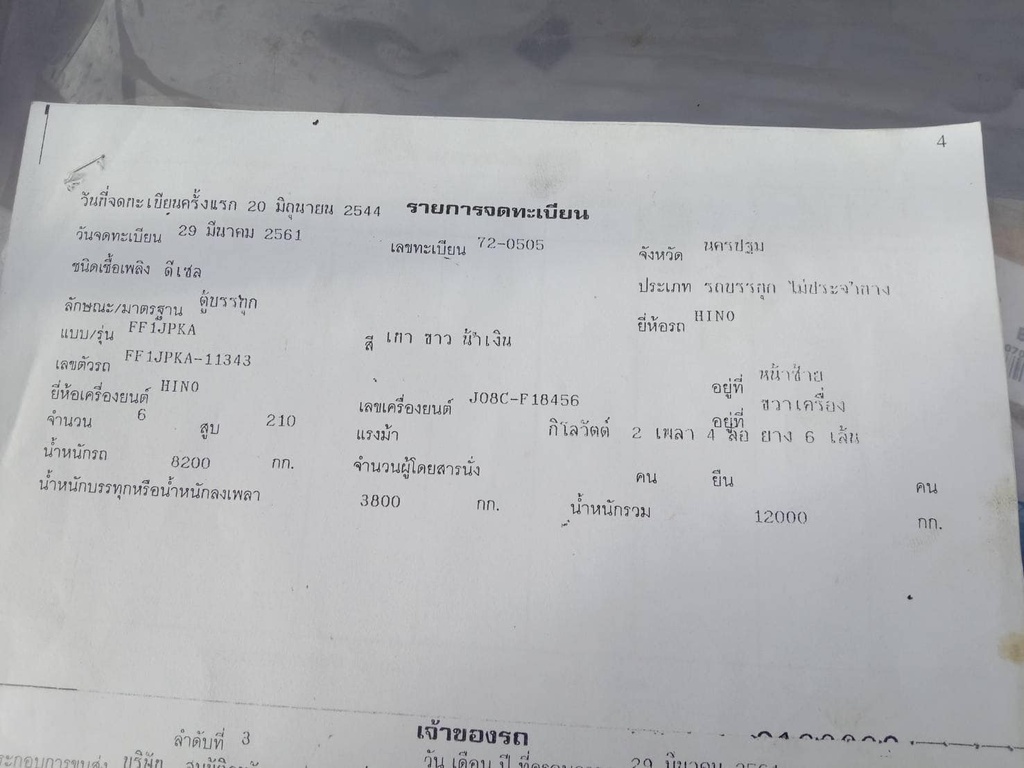 4
วันที่จดทะเบียนครั้งแรก 20 มิถุนายน 2544 รายการจดทะเบียน
วันจดทะเบียน 29 มีนาคม 2561 เลขทะเบียน 72-0505 จังหวัด นครปฐม
ชนิดเชื้อเพลิง ดีเซล ประเภท รถบรรทุก ไม่ประจำทาง
ลักษณะ/มาตรฐาน ตู้บรรทุก ยี่ห้อรถ HINO
แบบ/รุ่น FF1JPKA สี เทา ขาว น้ำเงิน
เลขตัวรถ FF1JPKA-11343 อยู่ที่ หน้าซ้าย
ยี่ห้อเครื่องยนต์ HINO เลขเครื่องยนต์ J08C-F18456 อยู่ที่ ขวาเครื่อง
จำนวน 6 สูบ 210 แรงม้า กิโลวัตต์ 2 เพลา 4 ล้อ ยาง 6 เส้น
น้ำหนักรถ 8200 กก. จำนวนผู้โดยสารนั่ง คน ยืน คน
น้ำหนักบรรทุกหรือน้ำหนักลงเพลา 3800 กก. น้ำหนักรวม 12000 กก.
ลำดับที่ 3 เจ้าของรถ
บริษัท วัน เดือน ปี ที่ 29 มีนาคม